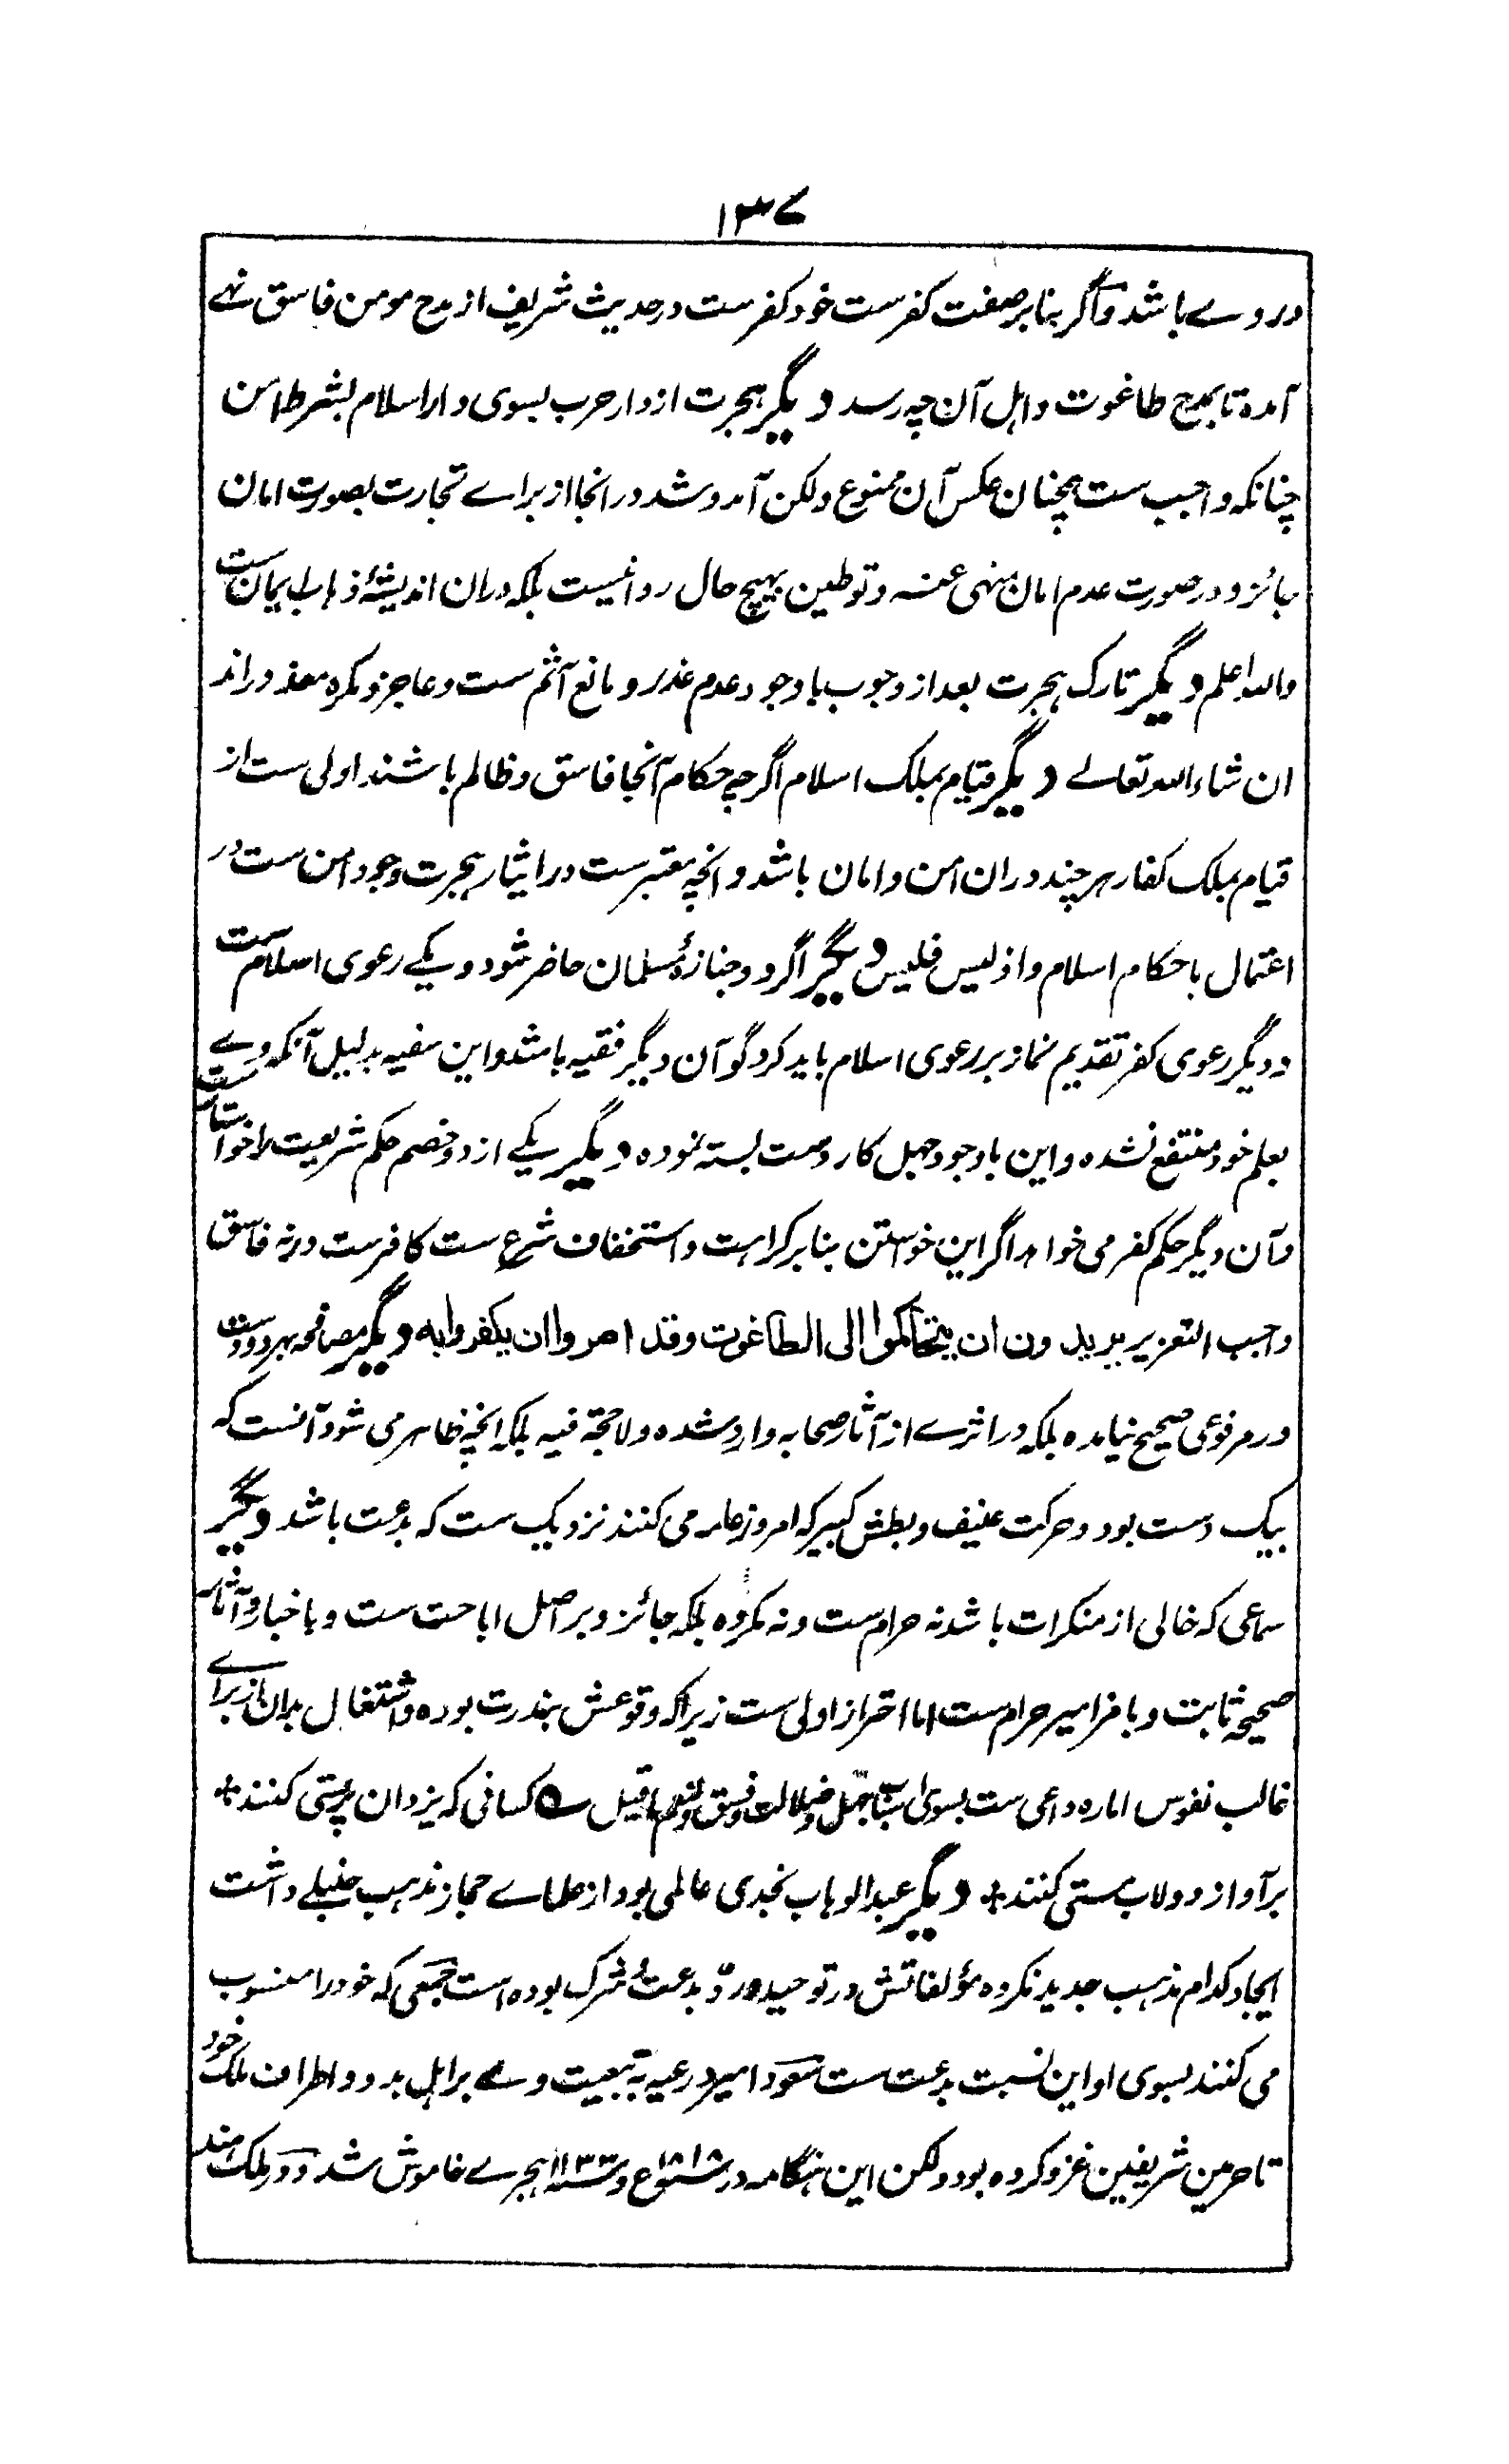 ۱۳۷
در وے باشد و اگر بنا بر صفت کفرست خود کفرست در حدیث شریف از مدح مومن فاسق نہے
آمده تا بمدح طاغوت و اہل آن چہ رسد دیگر ہجرت از دار حرب بسوی دار اسلام بشرط امن
چنانکہ واجب ست ہمچنان عکس آن ممنوع ولکن آمد و شد در انجا از براے تجارت بصورت امان
جائز و در صورت عدم امان منہی عنہ و توطین بہیچ حال روا نیست بلکہ دران اندیشۂ ذہاب ایمان ست
واللہ اعلم دیگر تارک ہجرت بعد از وجوب با وجود عدم عذر و مانع آثم ست و عاجز و مکره معذور اند
ان شاء اللہ تعالے دیگر قیام بملک اسلام اگرچہ حکام آنجا فاسق و ظالم باشند اولی ست از
قیام بملک کفار ہر چند دران امن و امان باشد و انچہ معتبرست در ایثار ہجرت وجود امن ست در
اعتمال باحکام اسلام و اذ لیس فلیس دیگر اگر دو جنازۂ مسلمان حاضر شود و یکے رعوی اسلام ست
و دیگر رعوی کفر تقدیم نماز بر رعوی اسلام باید کرد گو آن دیگر فقیہ باشد و این سفیہ بدلیل آنکہ وے
بعلم خود منتفع نشده و این با وجود جہل کار دست بستہ نموده دیگر یکے از دو خصم حکم شریعت را خواستار ست
و آن دیگر حکم کفر می خواہد اگر این خواستن بنا بر کراہت و استخفاف شرع ست کافرست ورنہ فاسق
واجب التعزیر یریدون ان یتحاکموا الی الطاغوت وقد امروا ان یکفروا به دیگر مصافحہ بہر دو دست
در مرفوعی صحیح نیامده بلکہ در اثرے از آثار صحابہ وارد شده ولا حجة فیہ بلکہ انچہ ظاہر می شود آنست کہ
بیک دست بود و حرکت عنیف و بطش کبیر کہ امروز عامہ می کنند نزدیک ست کہ بدعت باشد دیگر
سماعی کہ خالی از منکرات باشد نہ حرام ست و نہ مکروه بلکہ جائز و بر اصل اباحت ست و باخبار و آثار
صحیحہ ثابت و با مزامیر حرام ست اما احتراز اولی ست زیرا کہ وقوعش بندرت بوده و اشتغال بدان از براے
غالب نفوس اماره داعی ست بسوی جہل و ضلالت و فسق و نعم ما قیل ہ کسانی کہ یزدان پرستی کنند +
بر آواز دولاب مستی کنند + دیگر عبد الوہاب نجدی عالمی بود از علماے حجاز مذہب حنبلے داشت
ایجاد کدام مذہب جدید نکرده مؤلفاتش در توحید و رد بدعت و شرک بوده است جمعی کہ خود را منسوب
می کنند بسوی او این نسبت بدعت ست سعود امیر درعیہ بتبعیت وے بر اہل بدو و اطراف ملک خود
تا حرمین شریفین غزو کرده بود ولکن این ہنگامہ در ۱۸۱۸ع و ہجرے خاموش شد و در ملک ہند